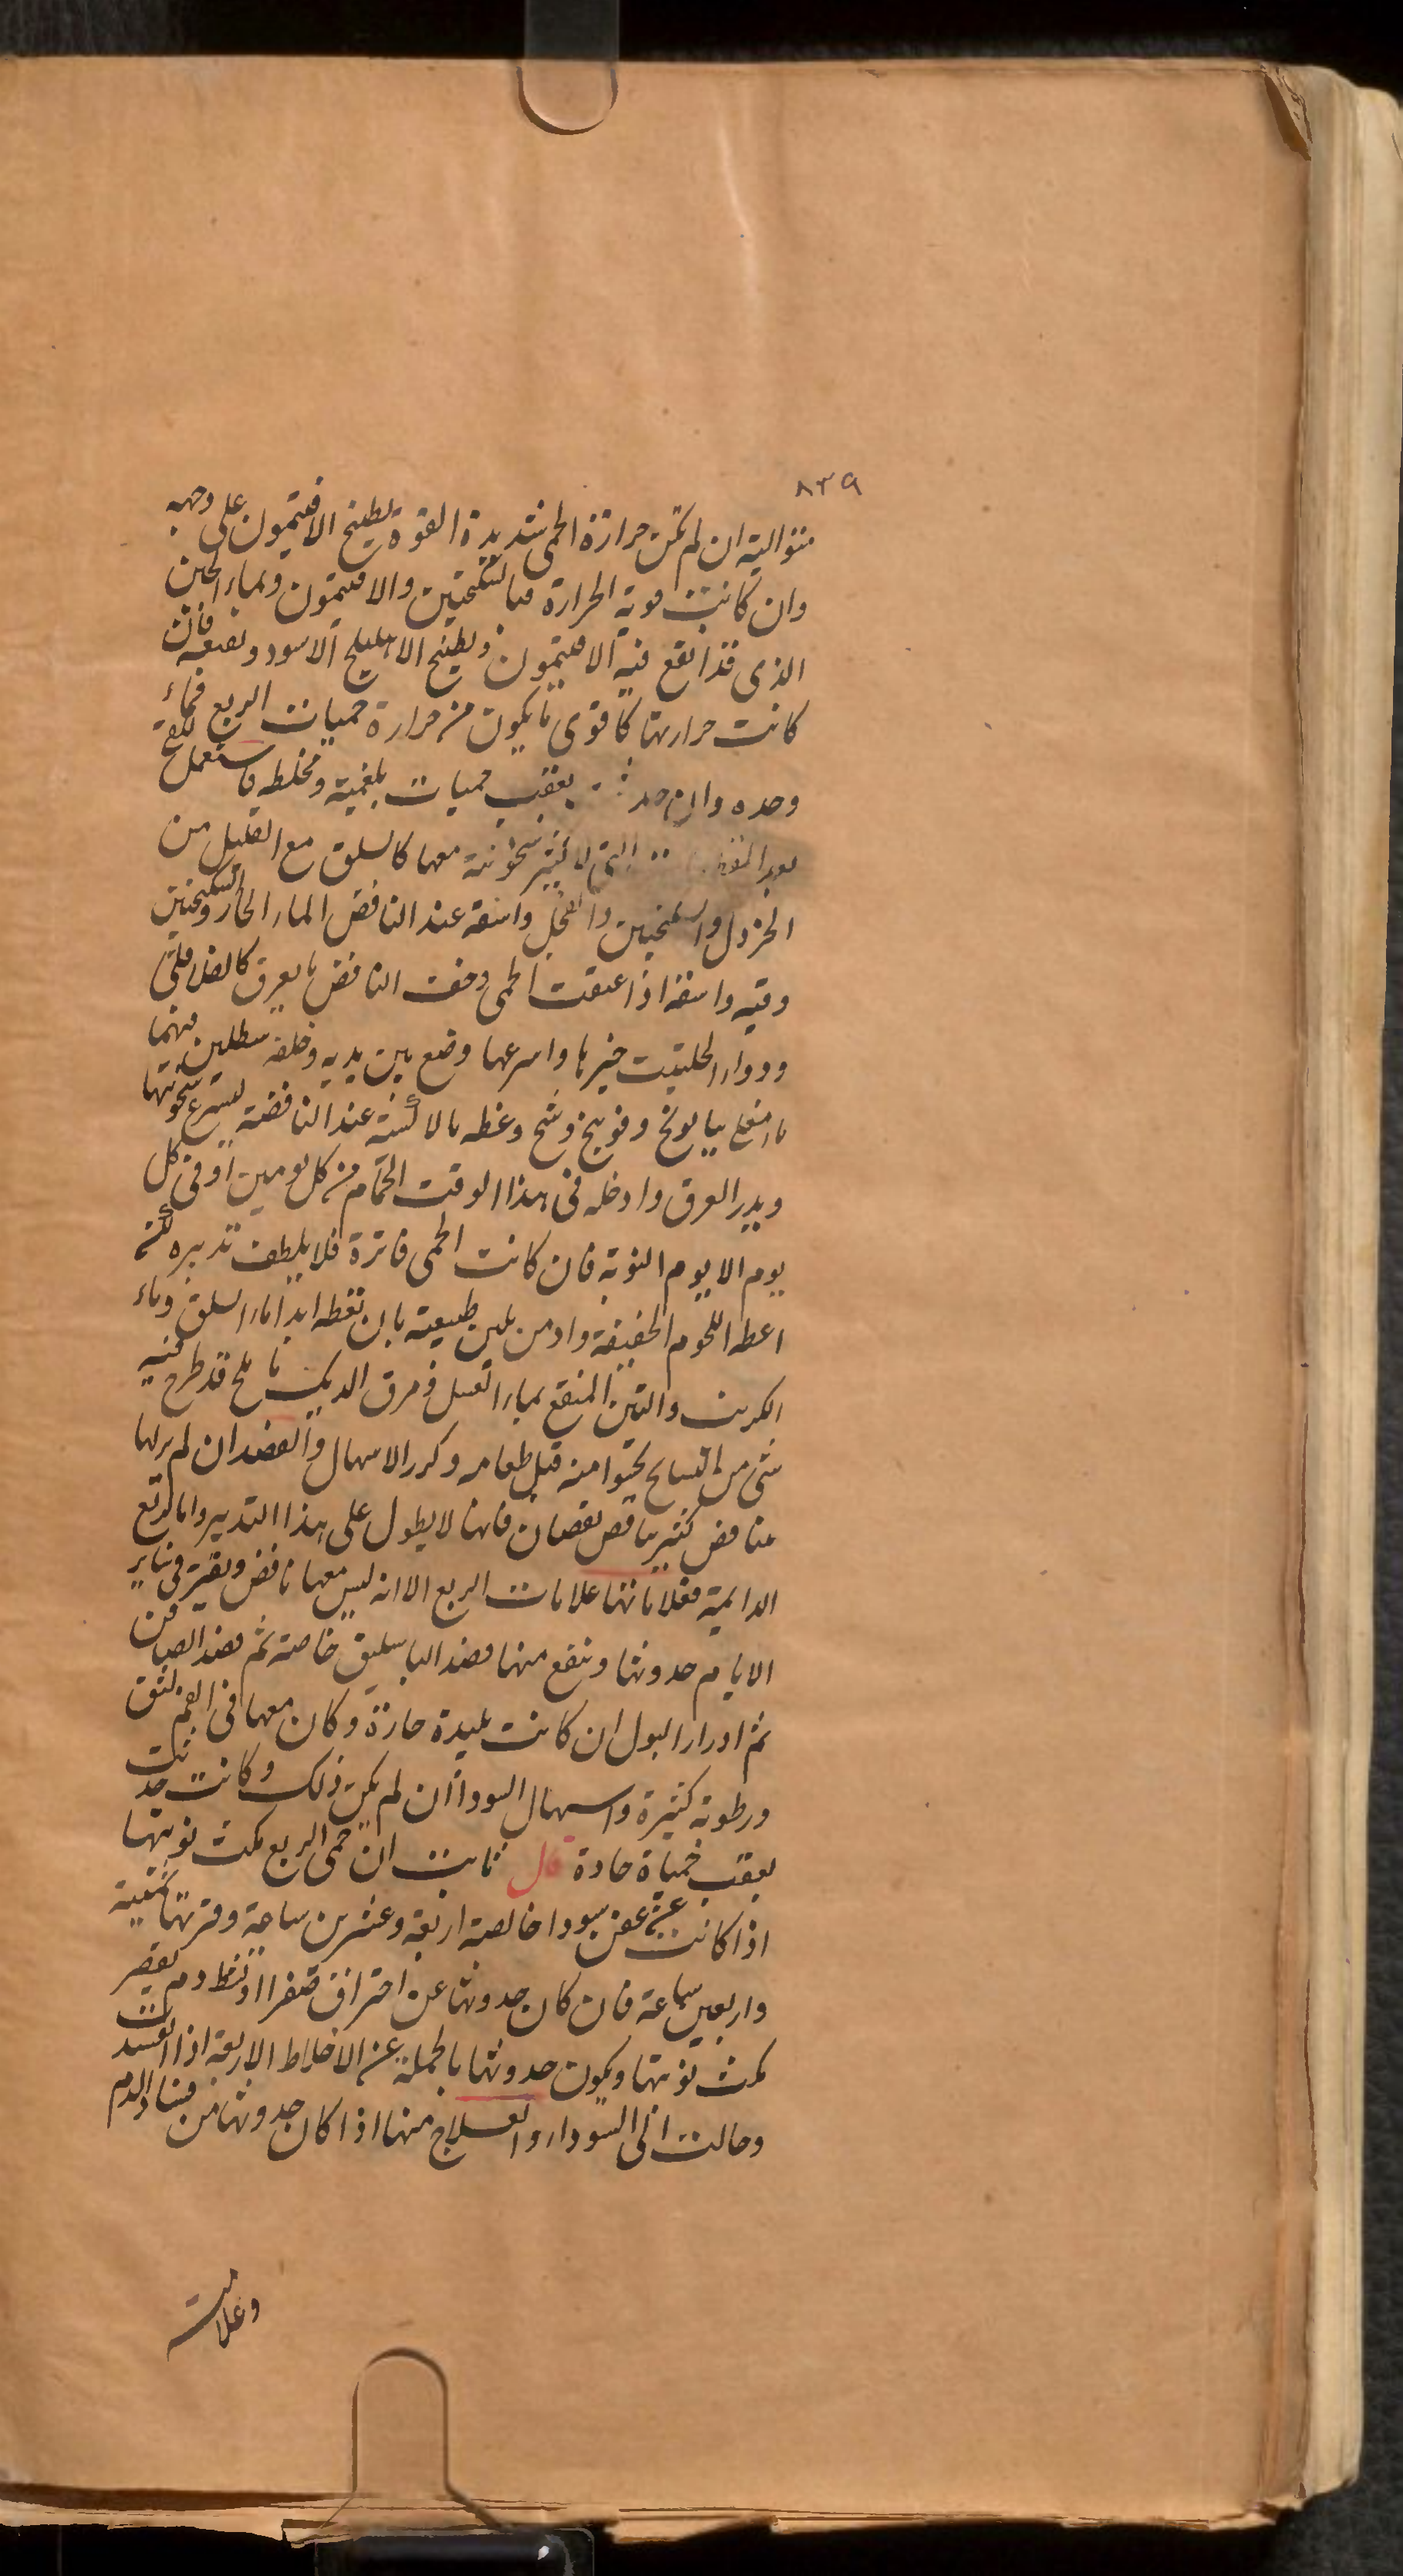 ٨٣٩
متوالية ان لم تكن حرارة الحمى شديدة القوة بطبيخ الافتيمون على وجهه
وان كانت قوية الحرارة فبالسكنجبين والافتيمون وبماء الجبن
الذى قد انقع فيه الافتيمون وبطبيخ الاهليلج الاسود ونقيعه فان
كانت حرارتها كاقوى ما يكون من حرارة حميات الربع فماء
وحده وان بعقب حميات بلغمية ومختلطة فاستعمل للقئ
بعد التى لا كثير سخونة معها كالسلق مع القليل من
الخردل والسكنجبين والفجل واسقه عند النافض الماء الحار والسكنجبين
وقيه واسقه اذا عتقت الحمى وخفت النافض ما يعرق كالفلافلى
ودواء الحلتيت خيرها واسرعها وضع بين يديه وخلفه سطلين فيهما
ماء اغلى ببابونج وفوتنج وشيح وغطه بالاكسية عند النافضة ليسرع سخونتها
ويدر العرق وادخله فى هذا الوقت الحمام من كل يومين او فى كل
يوم الا يوم النوبة فان كانت الحمى فاترة فلا يلطف تدبيره لكن
اعطه اللحوم الخفيفة وادمن تليين طبيعته بان تعطه ابدا ماء السلق وماء
الكرنب والتين المنقع بماء العسل ومرق الديك مالح قد طرح فيه
شى من البسايج يحتوا منه قبل طعامه وكرر الاسهال والفصد ان لم يرلها
تناقص كثير ناقص نقصان فانها لا يطول على هذا التدبير واما الربع
الدايمة فعلاماتها علامات الربع الا انه ليس معها نافض ويفتر فى ساير
الايام حدوثها وينفع منها فصد الباسليق خاصة ثم فصد الصافن
ثم ادرار البول ان كانت بليدة حارة وكان معها فى الفم لثق
ورطوبة كثيرة واسهال السودا ان لم يكن ذلك وكانت حدثت
بعقب حميات حادة قال ثابت ان حمى الربع مكث نوبتها
اذا كانت عن عفن سودا خالصة اربعة وعشرين ساعة وفترتها ثمنية
واربعين ساعة فان كان حدوثها عن احتراق صفرا او دم يقصر
مكث نوبتها ويكون حدوثها بالجملة عن الاخلاط الاربعة اذا فسدت
وحالت الى السوداء والعلاج منها اذا كان حدوثها من فساد الدم
وعلامته